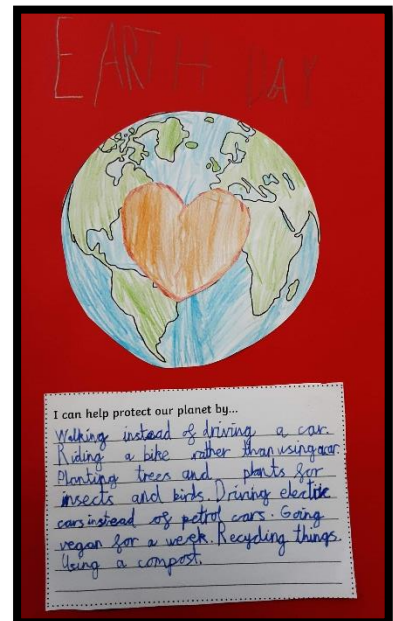 EARTH DAY
I can help protect our planet by...
Walking instead of driving a car.
Riding a bike rather than using a car.
Planting trees and plants for
insects and birds. Driving electric
cars instead of petrol cars. Going
vegan for a week. Recycling things.
Using a compost.